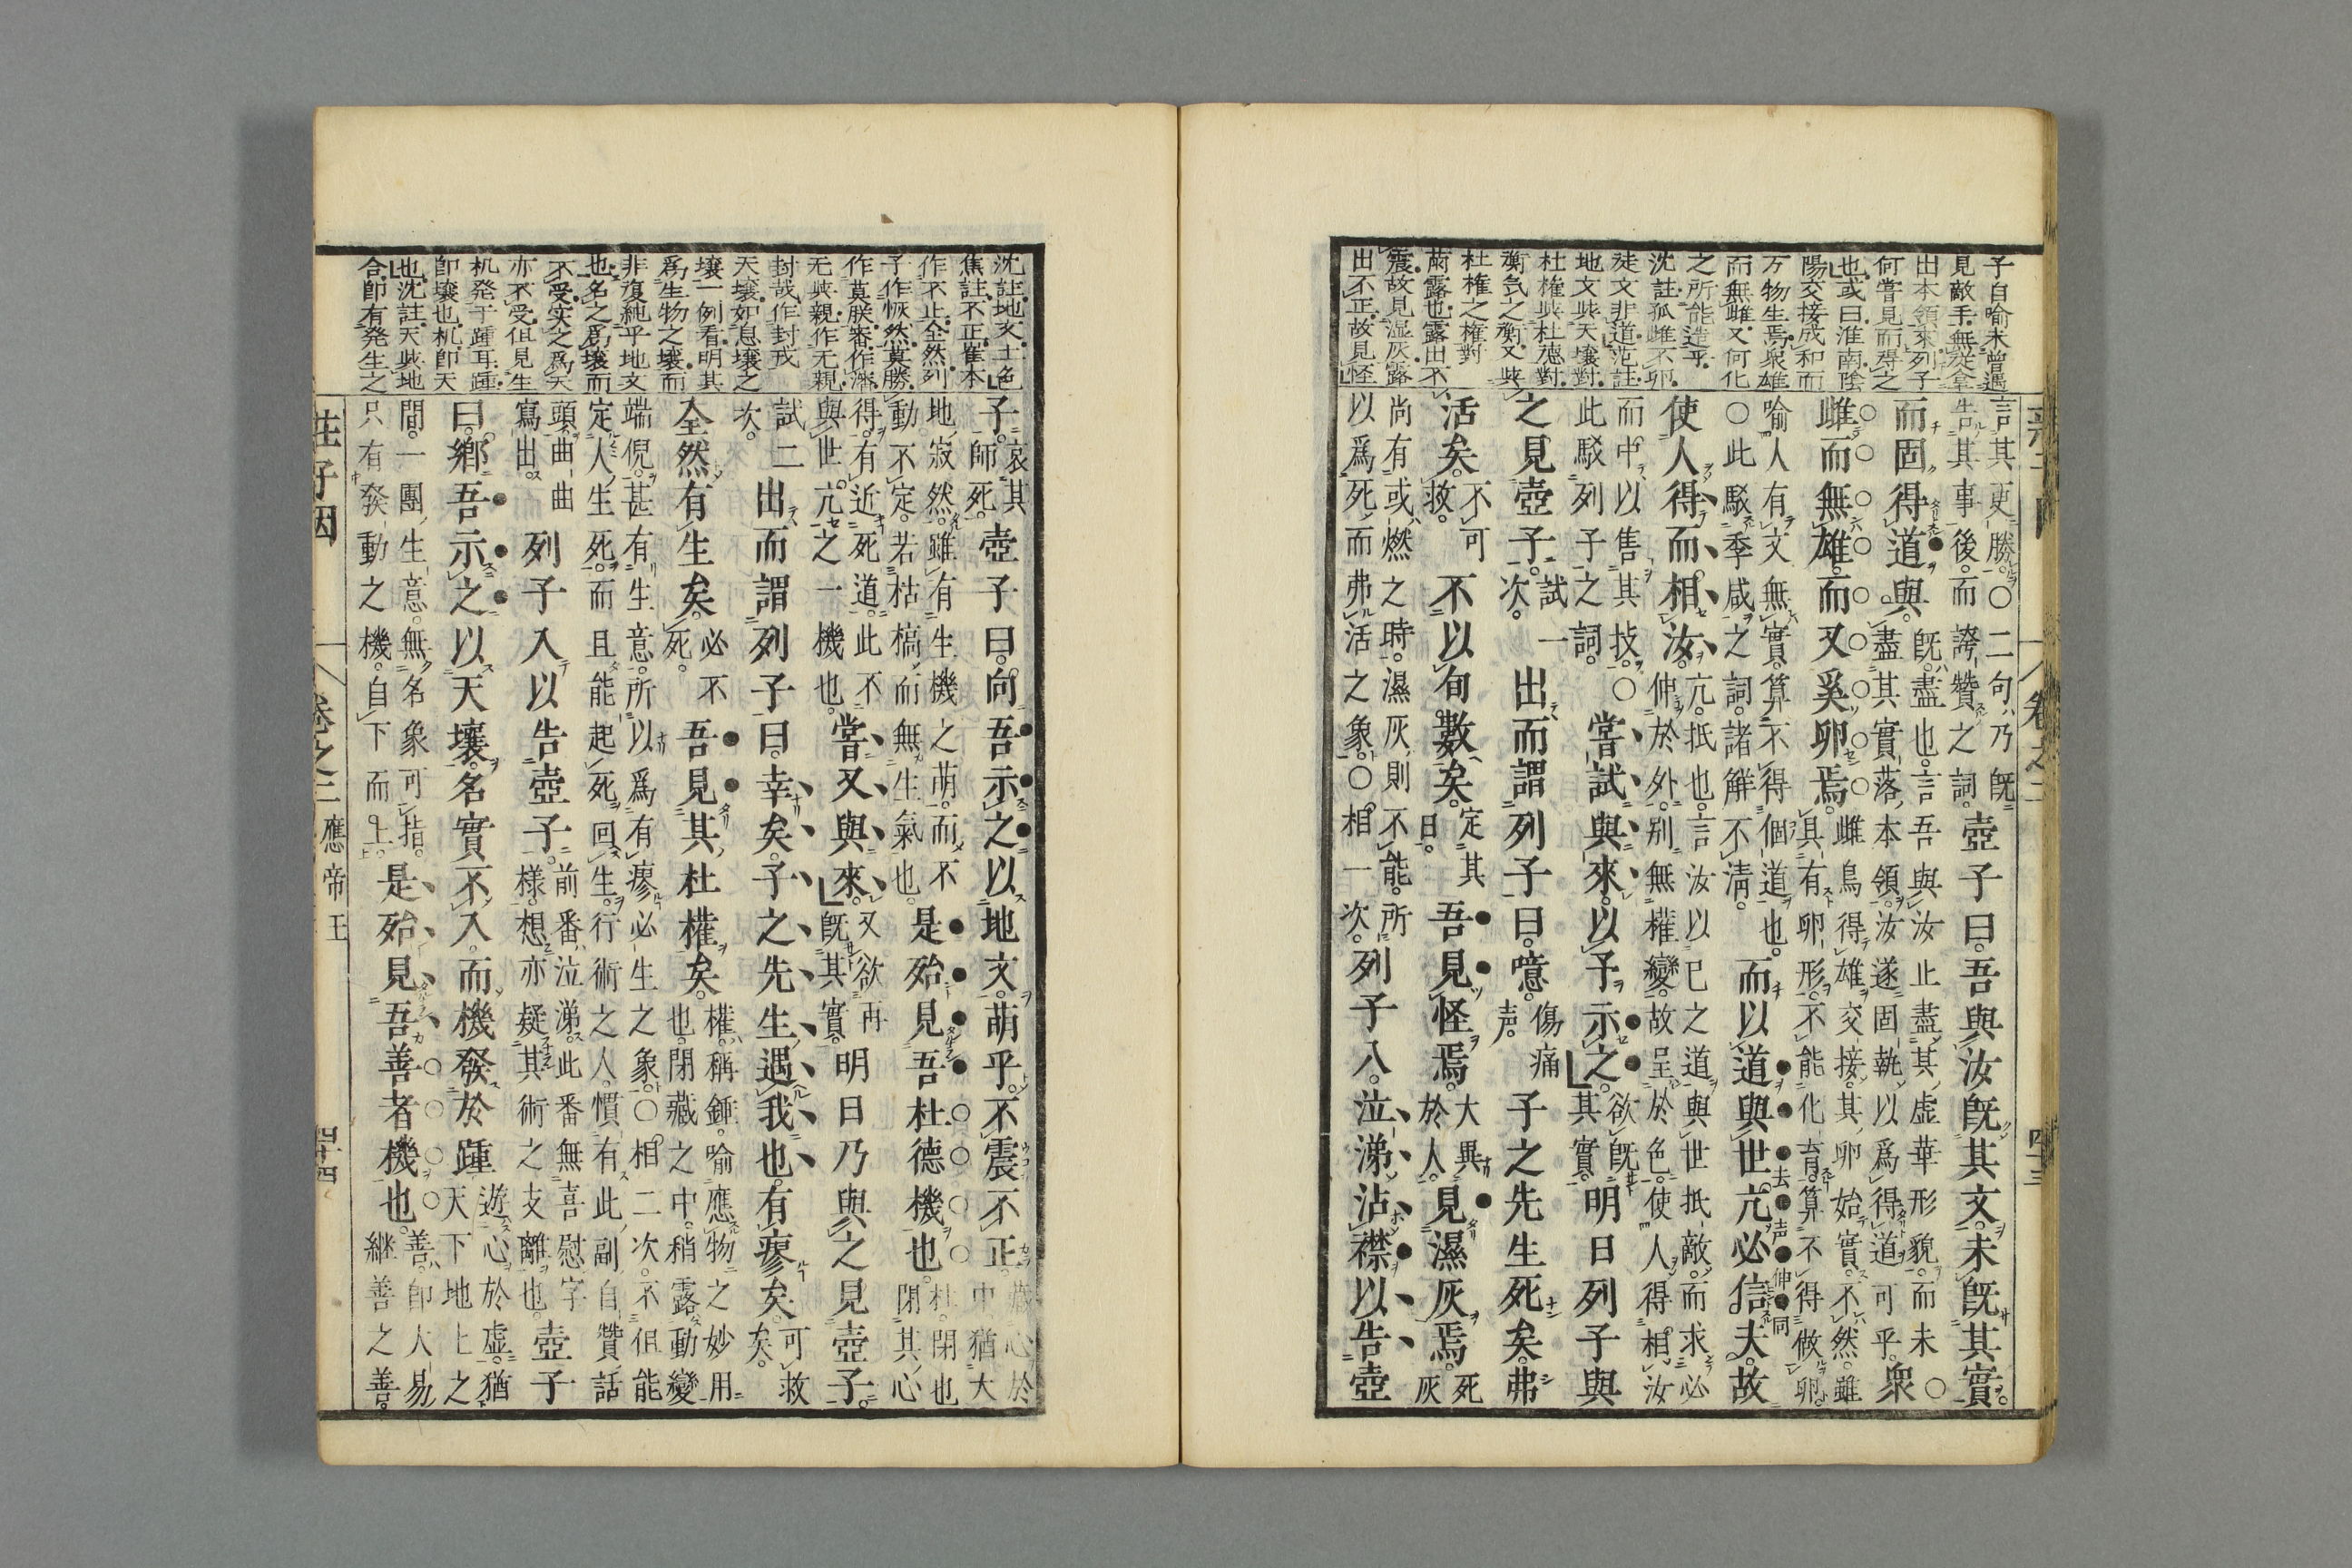 子自喻未曾遇
見敵手無從拿
出本領來列子
何嘗見而得之
也或曰淮南陰
陽交接成和而
万物生焉衆雄
而無雌又何化
之所能造乎
沈註孤雌不卵
徒文非道范註
地文與天壤對
杜權與杜德對
衡気之衡又與
杜權之権對
萠露也露出不
震故見湿灰露
出不正故見怪
言其更勝○二句乃旣
告其事後而誇贊之詞
壺子曰吾與汝旣其文未旣其實
而固得道與
旣盡也言吾與汝止盡其虛華形貌而未
盡其實落本領汝遂固執以爲得道可乎
衆
雌而無雄而又奚卵焉
雌鳥得雄交接其卵始實不然雖
具有卵形不能化育算不得做卵
喻人有文無實算不得個道也
○此駁季咸之詞諸解不淸
而以道與世亢必信夫故
使人得而相汝
亢抵也言汝以已之道與世抵敵而求必
伸於外別無權變故呈於色使人得相汝
而中以售其技○
此駁列子之詞
嘗試與來以予示之
欲旣
其實
明日列子與
之見壺子
試一
次
出而謂列子曰噫
傷痛
声
子之先生死矣弗
活矣
不可
救
不以旬數矣
定其
日
吾見怪焉
大異
於人
見濕灰焉
死
灰
尚有或燃之時濕灰則不能所
以爲死而弗活之象○相一次
列子入泣涕沾襟以告壺
沈註地文土色
焦註不正崔本
作不止全然列
子作恢然莫勝
作莫朕審作瀋
无與親作无親
封哉作封戎
天壤如息壤之
壤一例看明其
爲生物之壤而
非復純乎地文
也名之爲壤而
不受実之爲天
亦不受但見生
机発于踵耳踵
即壤也机即天
也沈註天與地
合即有発生之
子
哀其
師死
壺子曰向吾示之以地文萌乎不震不正
藏心於
中猶大
地寂然雖有生機之萠而不
動不定若枯槁而無生氣也
是殆見吾杜德機也
杜閉也
閉其心
得有近死道此不
與世亢之一機也
嘗又與來
又欲再
旣其實
明日乃與之見壺子
試二
次
出而謂列子曰幸矣子之先生遇我也有瘳矣
可救
矣
全然有生矣
必不
死
吾見其杜權矣
權稱錘喻應物之妙用
也閉藏之中稍露動變
端倪甚有生意所以爲有瘳必生之象○相二次不但能
定人生死而且能起死回生行術之人慣有此副自贊話
頭曲曲
寫出
列子入以告壺子
前番泣涕此番無喜慰字
様想亦疑其術之支離也
壺子
曰鄕吾示之以天壤名實不入而機發於踵
遊心於虛猶
天下地上之
間一團生意無名象可指
只有發動之機自下而上
是殆見吾善者機也
善即大易
継善之善
莊子因
卷之二 應帝王
四十四